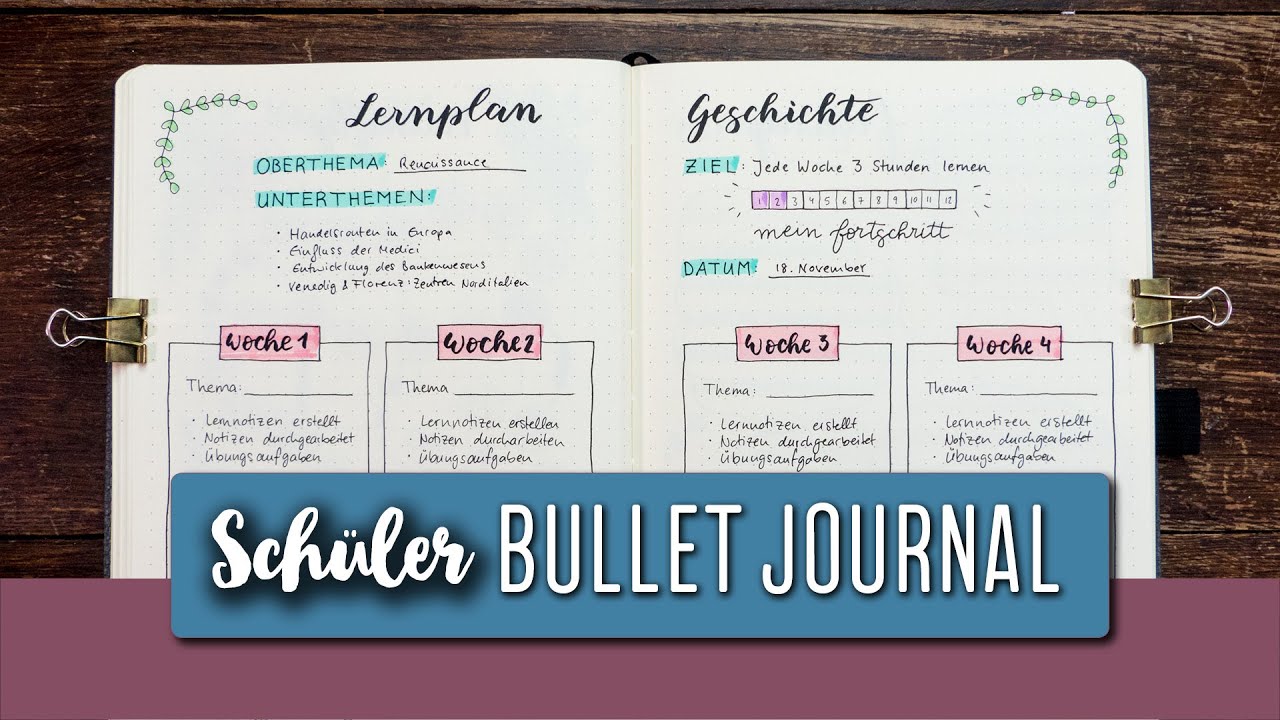 Lernplan
OBERTHEMA: Renaissance
UNTERTHEMEN:
· Handelsrouten in Europa
· Einfluss der Medici
· Entwicklung des Bankenwesens
· Venedig & Florenz: Zentren Norditalien
Woche 1
Thema:
· Lernnotizen erstellt
· Notizen durchgearbeitet
· Übungsaufgaben
Woche 2
Thema
· Lernnotizen erstellen
· Notizen durcharbeiten
· Übungsaufgaben
Geschichte
ZIEL: Jede Woche 3 Stunden lernen
1 2 3 4 5 6 7 8 9 10 11 12
mein fortschritt
DATUM: 18. November
Woche 3
Thema:
· Lernnotizen erstellt
· Notizen durchgearbeitet
· Übungsaufgaben
Woche 4
Thema:
· Lernnotizen erstellt
· Notizen durchgearbeitet
· Übungsaufgaben
Schüler BULLET JOURNAL